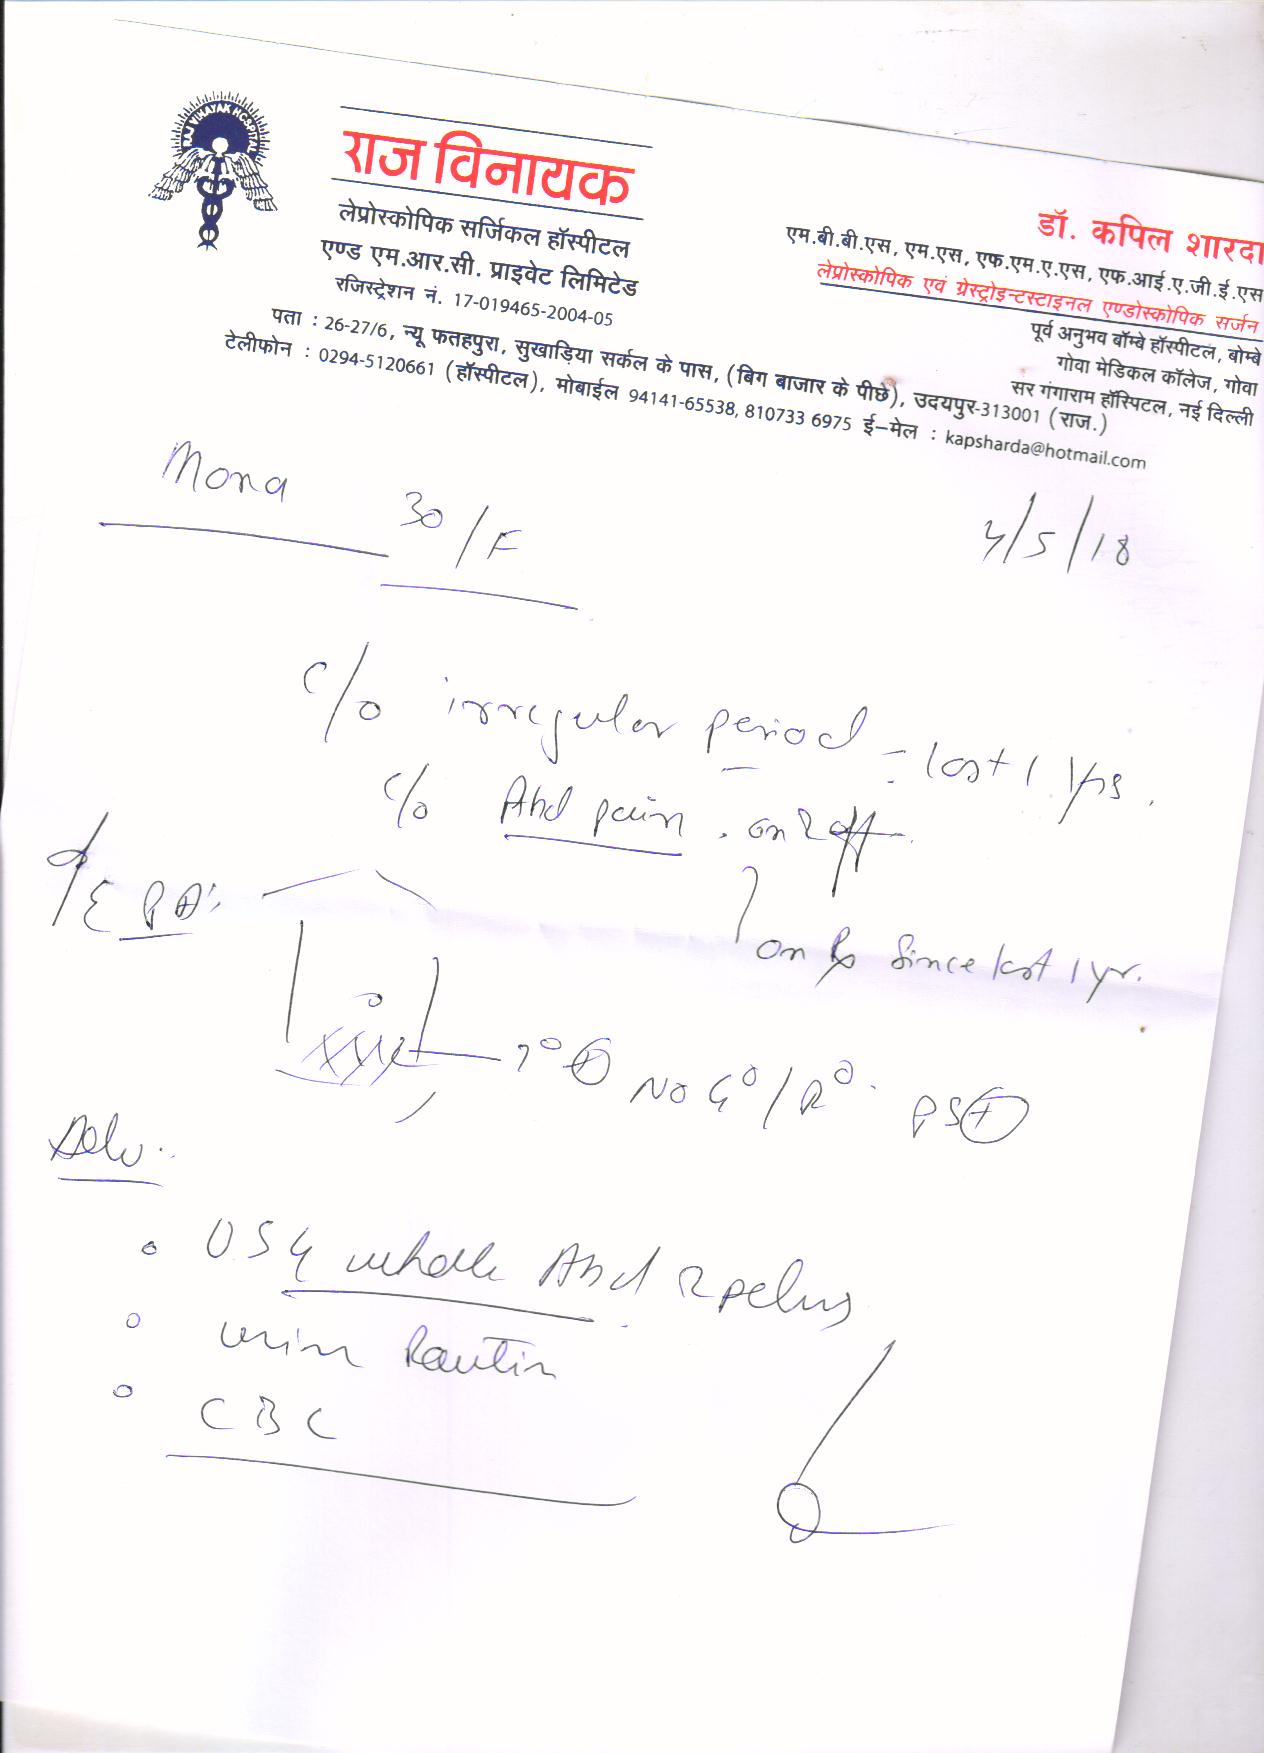 RAJ VINAYAK HOSPITAL
राज विनायक
लेप्रोस्कोपिक सर्जिकल हॉस्पीटल
एण्ड एम.आर.सी. प्राइवेट लिमिटेड
रजिस्ट्रेशन नं. 17-019465-2004-05
पता : 26-27/6, न्यू फतहपुरा, सुखाड़िया सर्कल के पास, (बिग बाजार के पीछे), उदयपुर-313001 (राज.)
टेलीफोन : 0294-5120661 (हॉस्पीटल), मोबाईल 94141-65538, 810733 6975 ई-मेल : kapsharda@hotmail.com
डॉ. कपिल शारदा
एम.बी.बी.एस, एम.एस, एफ.एम.ए.एस, एफ.आई.ए.जी.ई.एस
लेप्रोस्कोपिक एवं ग्रेस्ट्रोइन्टस्टाइनल एण्डोस्कोपिक सर्जन
पूर्व अनुभव बॉम्बे हॉस्पीटल, बोम्बे
गोवा मेडिकल कॉलेज, गोवा
सर गंगाराम हॉस्पिटल, नई दिल्ली
Mona 30/F
4/5/18
c/o irregular period = last 1 yrs.
c/o Abd pain . on & off
on Rx since last 1 yr.
P/A
T° + NO G°/R° . PS +
Adv.
USG whole Abd & pelvis
urine Routin
CBC